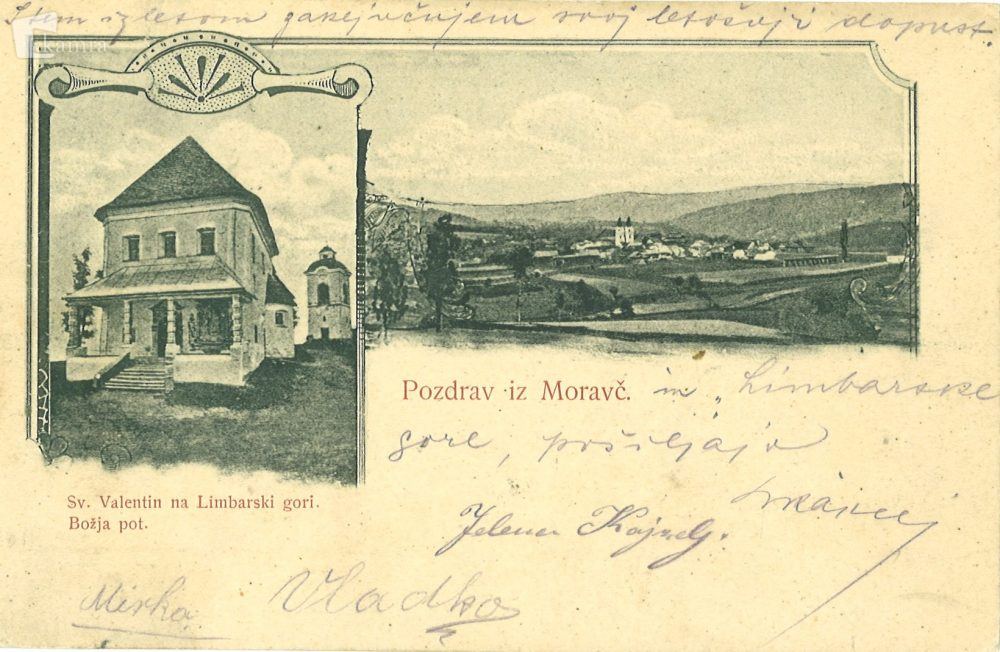 S tem izletom zakejučujem svoj letošnji dopust
kamra
Pozdrav iz Moravč. in Limbarske
gore, pošiljajo
Sv. Valentin na Limbarski gori.
Božja pot.
Jelena
Mirko Vladko